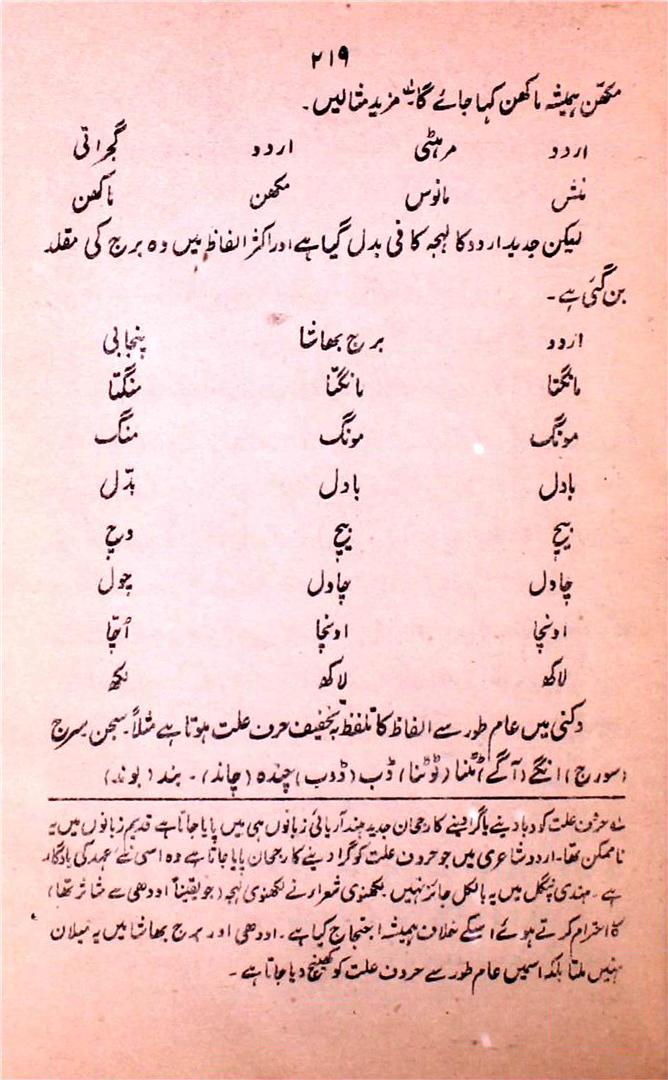 ۲۱۹
مکھّن ہمیشہ ماکھن کہا جائے گا۔ لہ مزید مثالیں۔
اردو مرہٹی اردو گجراتی
منش مانوس مکھن ماکھن
لیکن جدید اردو کا لہجہ کافی بدل گیا ہے اور اکثر الفاظ میں وہ برج کی مقلد
بن گئی ہے۔
اردو برج بھاشا پنجابی
مانگتا مانگتا منگتا
مونگ مونگ منگ
بادل بادل بدّل
بیچ بیچ وچ
چاول چاول چول
اونچا اونچا اُچّا
لاکھ لاکھ لکھ
دکنی میں عام طور سے الفاظ کا تلفظ بہ تخفیف حرف علت ہوتا ہے مثلاً۔ سجن۔ سرج
(سورج) انگے (آگے) ٹٹنا (ٹوٹنا) ڈب (ڈوب) چندہ (چاند)۔ بند (بوند)
لہ حرف علت کو دبا دینے یا گرا دینے کا رجحان جدید ہند آریائی زبانوں ہی میں پایا جاتا ہے قدیم زبانوں میں یہ
ناممکن تھا۔ اردو شاعری میں جو حروف علت کو گرا دینے کا رجحان پایا جاتا ہے وہ اسی نئے عہد کی یادگار
ہے۔ ہندی پنگل میں یہ بالکل جائز نہیں۔ لکھنوی شعرار نے لکھنوی لہجہ (جو یقیناً اودھی سے متاثر تھا)
کا احترام کرتے ہوئے اسکے خلاف ہمیشہ احتجاج کیا ہے۔ اودھی اور برج بھاشا میں یہ میلان
نہیں ملتا بلکہ اسمیں عام طور سے حروف علت کو کھینچ دیا جاتا ہے۔